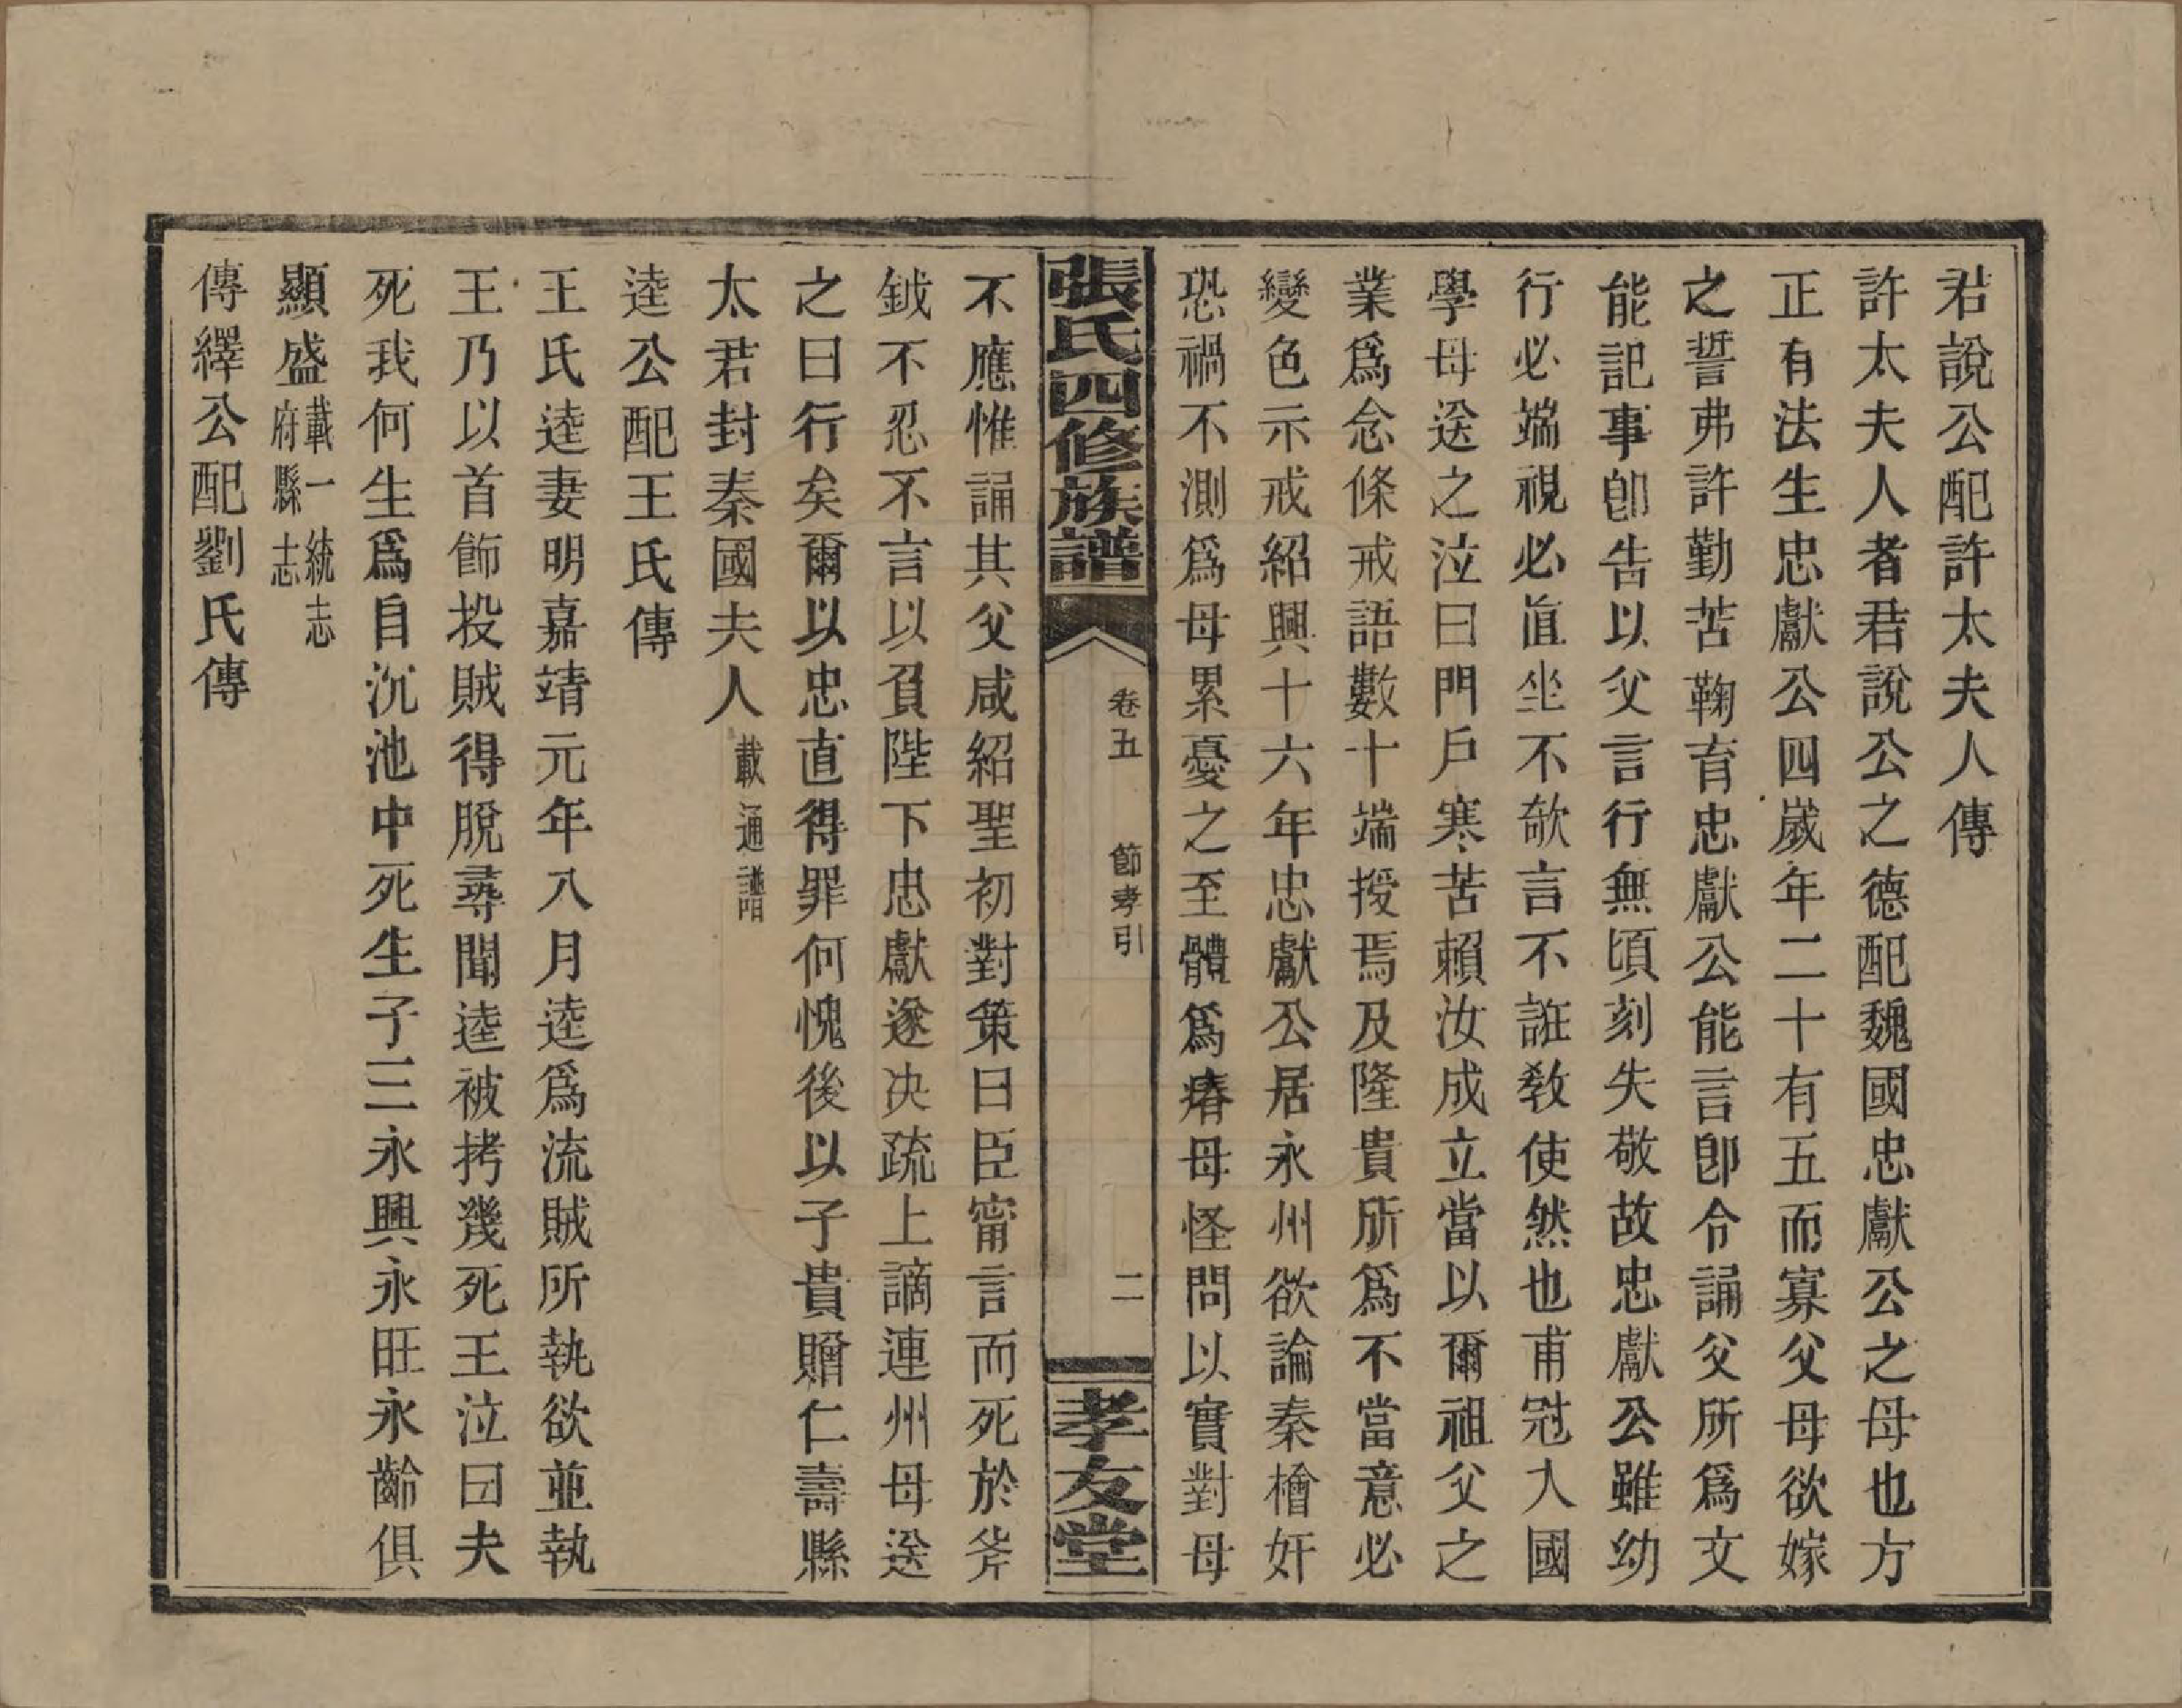 君說公配許太夫人傳
許太夫人者君說公之德配魏國忠獻公之母也方
正有法生忠獻公四歲年二十有五而寡父母欲嫁
之誓弗許勤苦鞠育忠獻公能言卽令誦父所爲文
能記事卽告以父言行無頃刻失敬故忠獻公雖幼
行必端視必直坐不欹言不誑敎使然也甫冠入國
學母送之泣曰門戶寒苦賴汝成立當以爾祖父之
業爲念條戒語數十端授焉及隆貴所爲不當意必
變色示戒紹興十六年忠獻公居永州欲論秦檜奸
恐禍不測爲母累憂之至體爲瘠母怪問以實對母
張氏四修族譜
卷五
節孝引
二
孝友堂
不應惟誦其父咸紹聖初對策曰臣甯言而死於斧
鉞不忍不言以負陛下忠獻遂决疏上謫連州母送
之曰行矣爾以忠直得罪何愧後以子貴贈仁壽縣
太君封秦國夫人載通譜
逵公配王氏傳
王氏逵妻明嘉靖元年八月逵爲流賊所執欲並執
王乃以首飾投賊得脫尋聞逵被拷幾死王泣曰夫
死我何生爲自沉池中死生子三永興永旺永齡俱
顯盛載一統志府縣志
傳繹公配劉氏傳